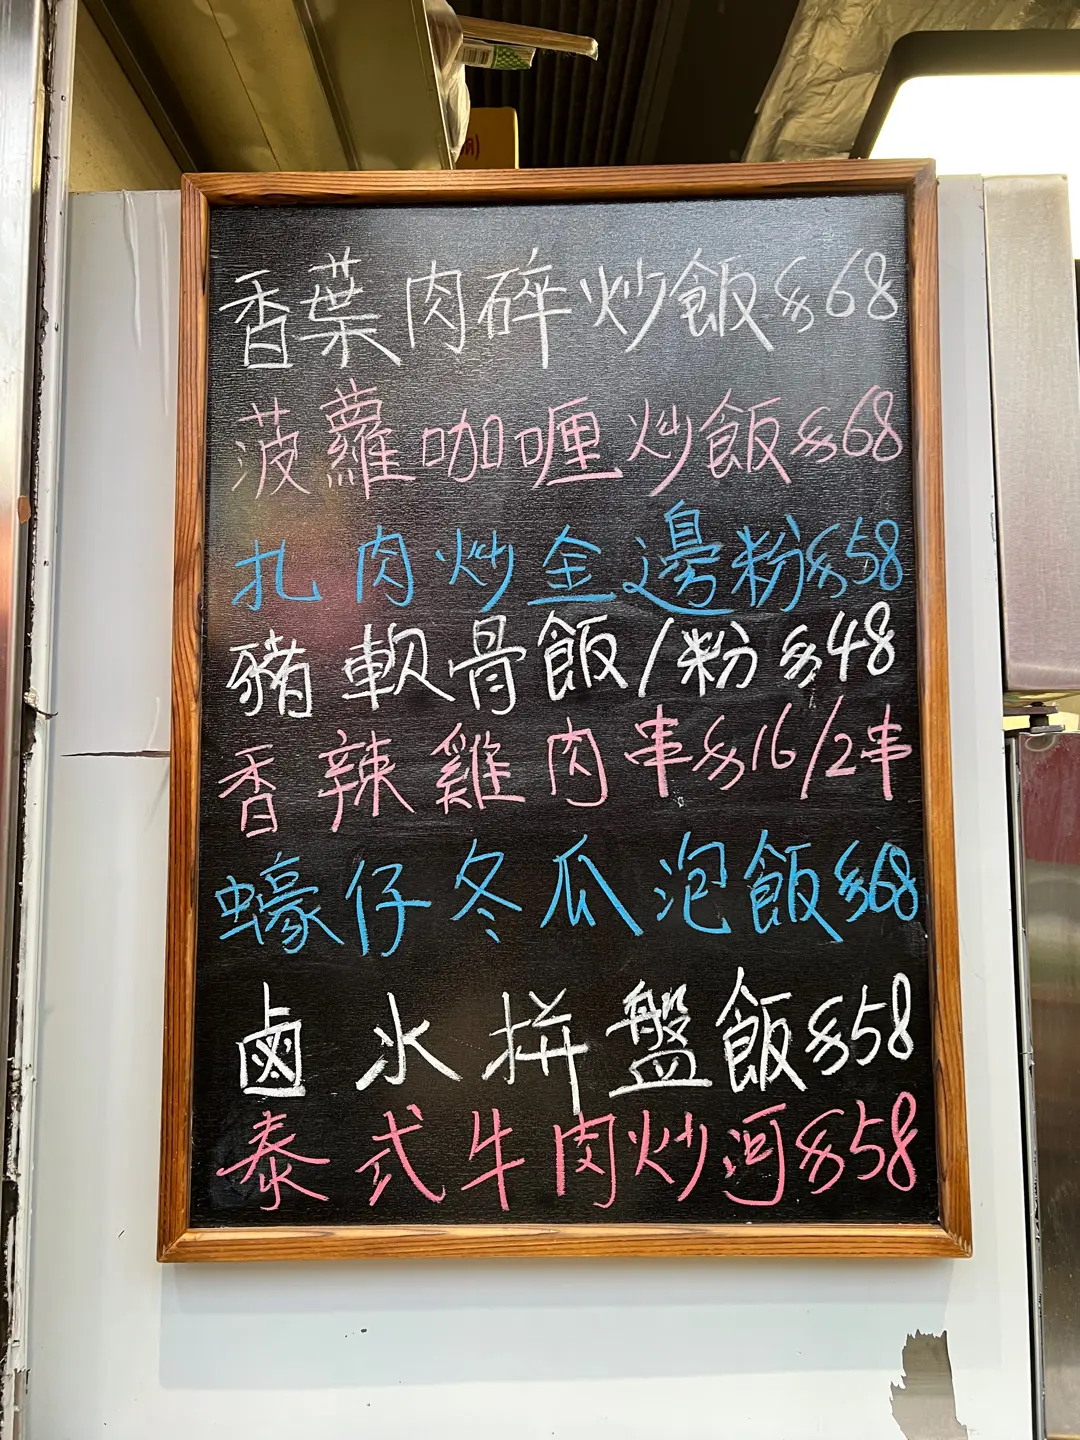 香葉肉碎炒飯$68
菠蘿咖喱炒飯$68
扎肉炒金邊粉$58
豬軟骨飯/粉$48
香辣雞肉串$16/2串
蠔仔冬瓜泡飯$68
鹵水拼盤飯$58
泰式牛肉炒河$58